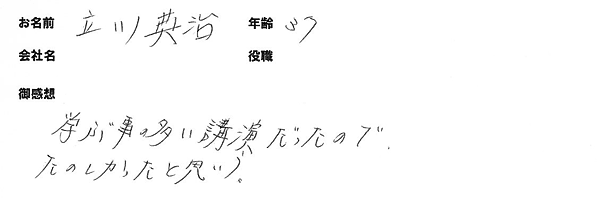 お名前 立川英治 年齢 37
会社名 役職
御感想
学ぶ事の多い講演だったので、
たのしかったと思いう。